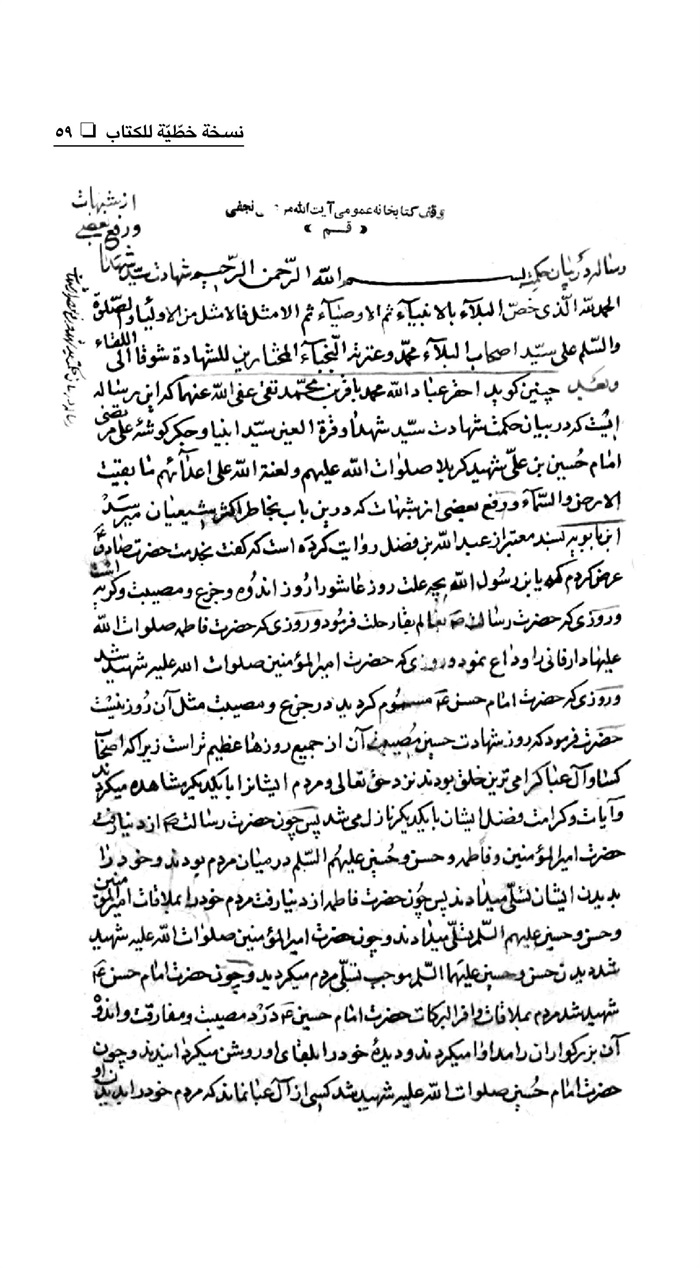 نسخة خطّيّة للكتاب ❏ ۵۹
از شبهات
و رفع بعضی
وقف کتابخانه عمومی آیت الله مر نجفی
« قـم »
رساله در بیان حکمت بسم الله الرّحمن الرّحیم شهادت سید شهدا
الحمد لله الّذی خصّ البلاء بالانبیاء ثم الاوصیاء ثم الامثل فالامثل من الاولیاء والصلوة
والسّلم علی سیّد اصحاب البلاء محمّد وعترته النّجباء المختارین للشهادة شوقا الی اللقاء
وبعد چنین کوید احقر عباد الله محمد باقر بن محمّد تقی عفی الله عنهما که این رساله
ایست که در بیان حکمت شهادت سیّد شهدا و قرة العین سیّد انبیا و جکر کوشهٔ علی مرتضی
امام حسین بن علی شهید کربلا صلوات الله علیهم ولعنة الله علی اعدائهم ما بقیت
الارض والسّماء و رفع بعضی از شبهات که در این باب بخاطر اکثر شیعیان میرسد
ابن بابویه بسند معتبر از عبد الله بن فضل روایت کرده است که کفت بخدمت حضرت صادق ع
عرض کردم که یا بن رسول الله بچه علت روز عاشورا روز اندوه و جزع و مصیبت و کریه است
و روزی که حضرت رسالت ص بعالم بقا رحلت فرمود و روزی که حضرت فاطمه صلوات الله
علیها دار فانی را وداع نمود و روزی که حضرت امیر المؤمنین صلوات الله علیه شهید شد
و روزی که حضرت امام حسن ع مسموم کردید در جزع و مصیبت مثل آن روز نیست
حضرت فرمود که روز شهادت حسین مصیبت آن از جمیع روزها عظیم تر است زیرا که اصحاب
کسا و آل عبا کرامی ترین خلق بودند نزد حق تعالی و مردم ایشانرا با یکدیکر مشاهده میکردند
و آیات و کرامت و فضل ایشان با یکدیکر نازل می شد پس چون حضرت رسالت ص از دنیا رفت
حضرت امیر المؤمنین و فاطمه و حسن و حسین علیهم السّلم در میان مردم بودند و خود را
بدیدن ایشان تسلّی میدادند پس چون حضرت فاطمه از دنیا رفت مردم خود را بملاقات امیر المؤمنین
و حسن و حسین علیهم السّلم تسلّی میدادند و چون حضرت امیر المؤمنین صلوات الله علیه شهید
شد دیدن حسن و حسین علیهما السّلم موجب تسلّی مردم میکردید و چون حضرت امام حسن ع
شهید شد مردم بملاقات وافر البرکات حضرت امام حسین ع درد مصیبت و مفارقت و اندوه
آن بزرکواران را مداوا میکردند و دیدهٔ خود را بلقای او روشن میکردانیدند و چون
حضرت امام حسین صلوات الله علیه شهید شد کسی از آل عبا نماند که مردم خود را بدیدن او